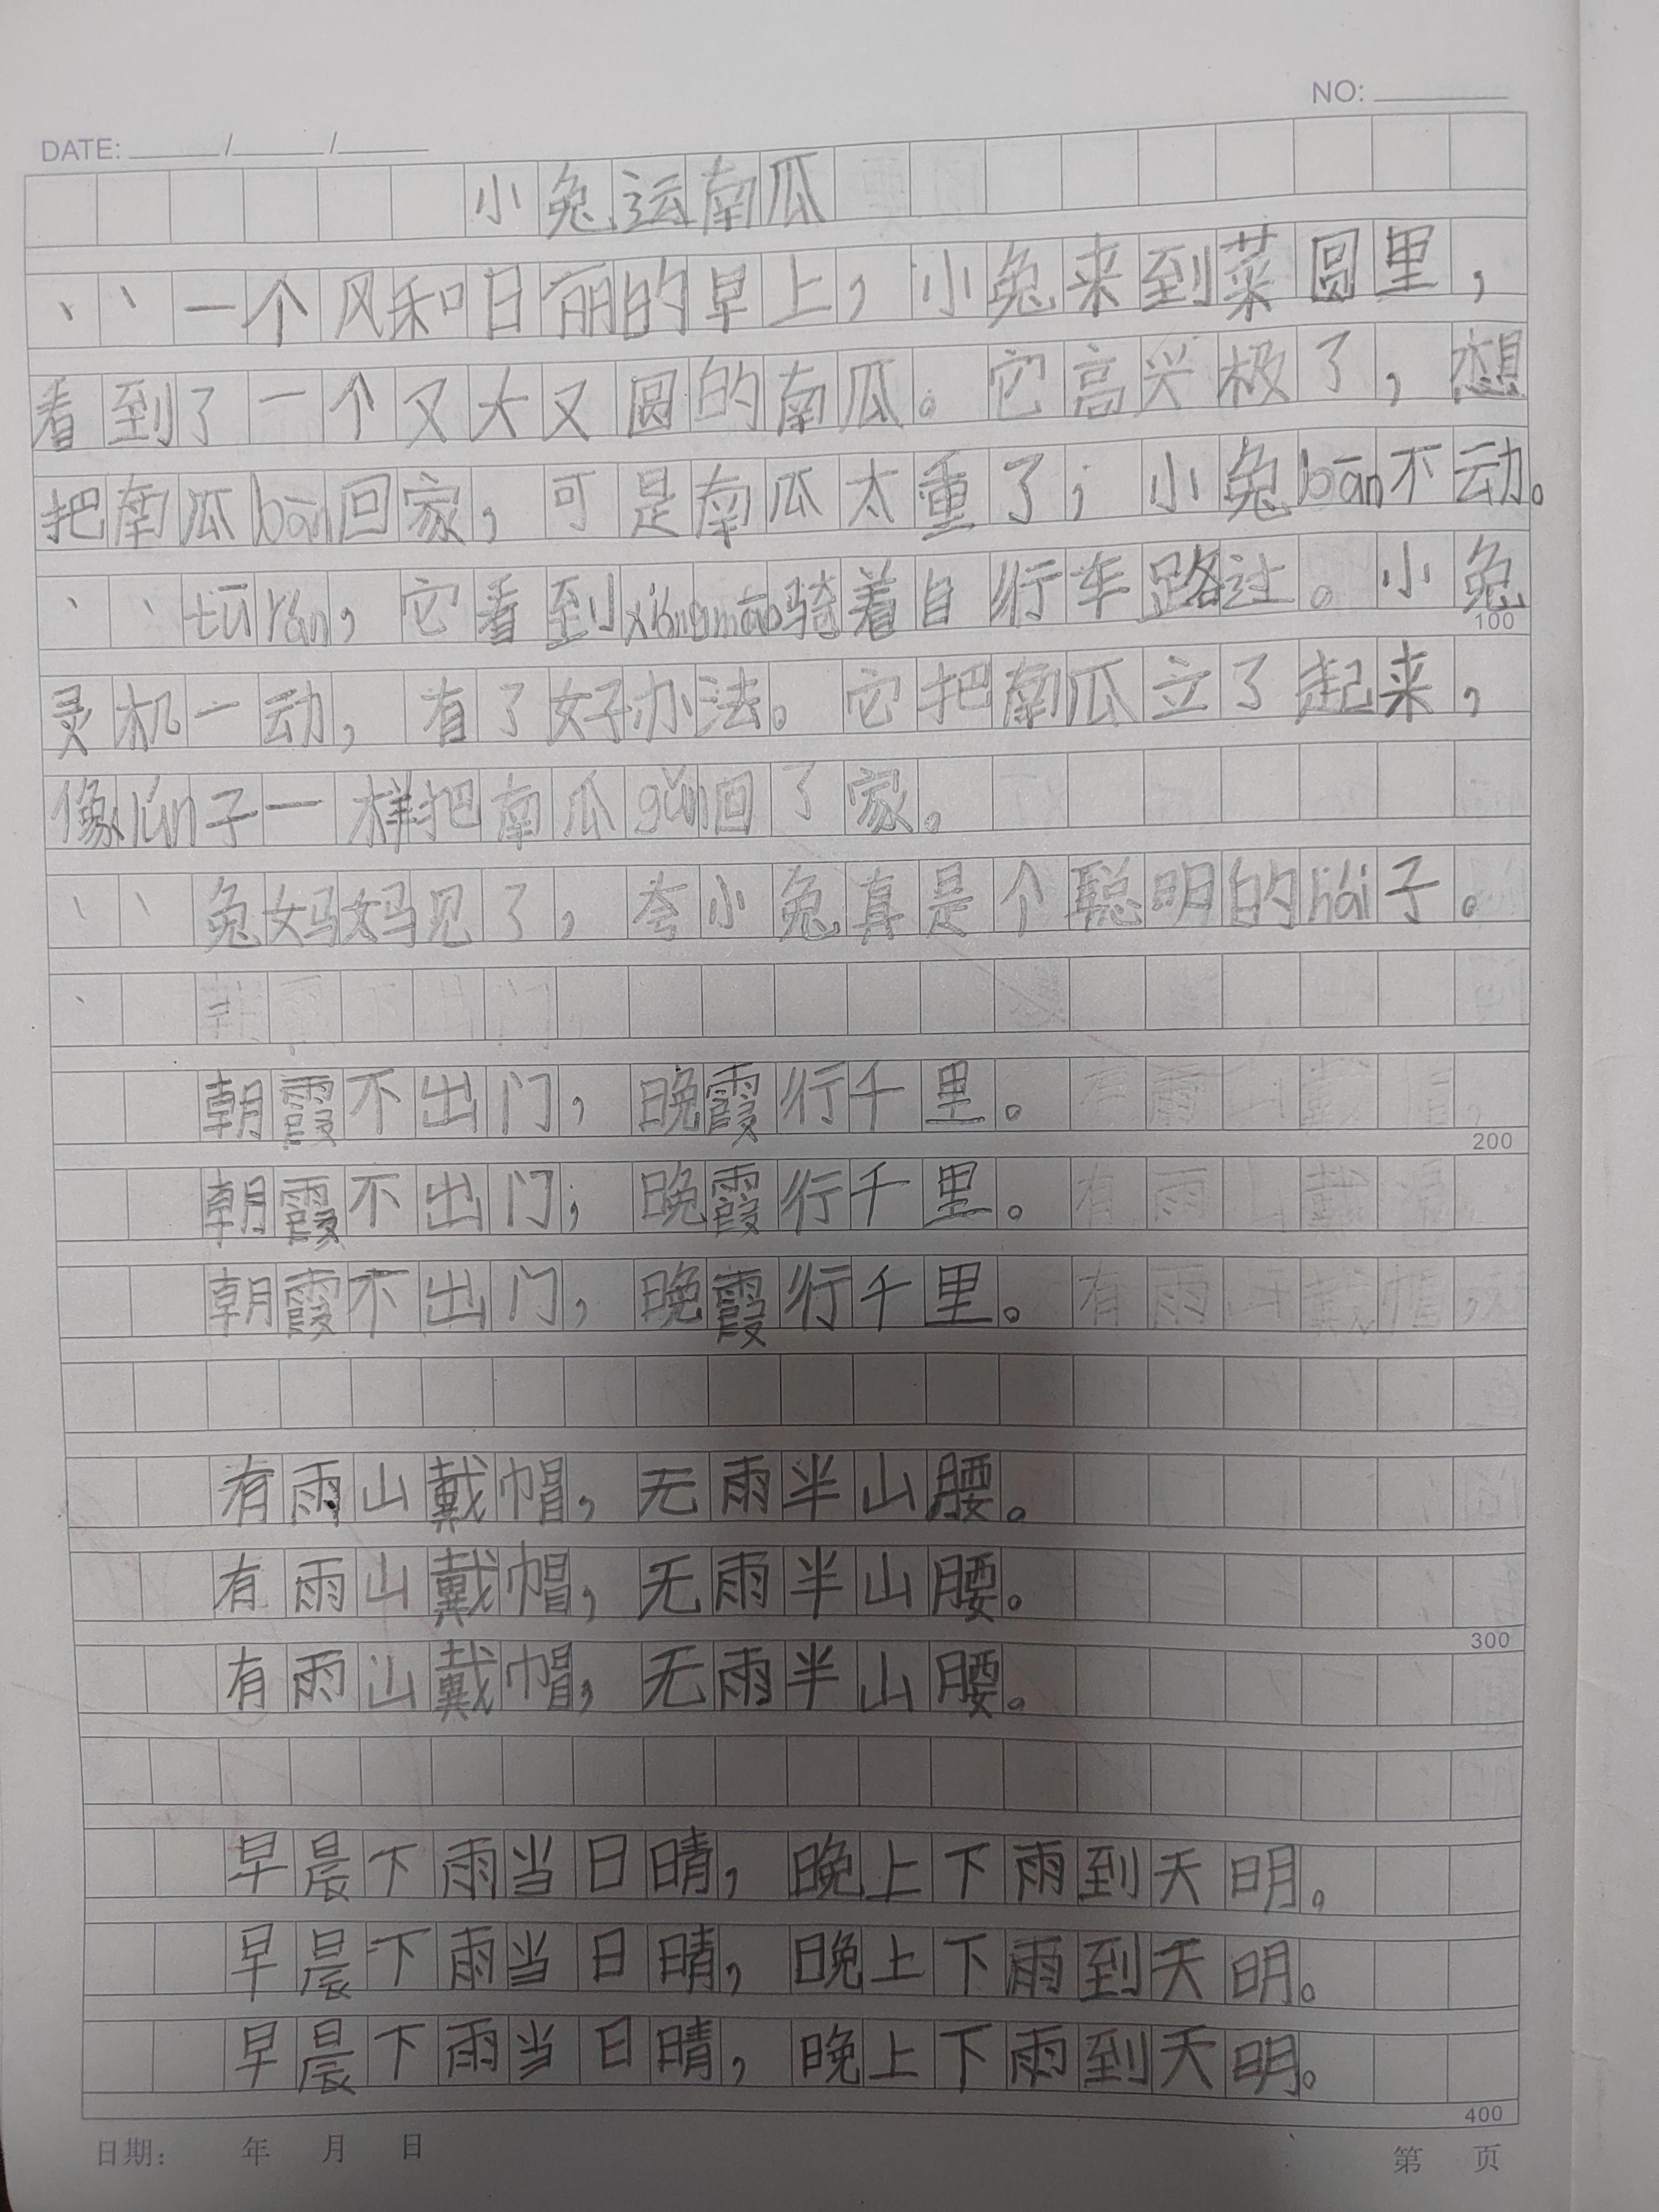 NO:
DATE: / /
小兔运南瓜
、、一个风和日丽的早上，小兔来到菜圆里，
看到了一个又大又圆的南瓜。它高兴极了，想
把南瓜bān回家，可是南瓜太重了；小兔bān不动。
、、tū rán，它看到xióngmāo骑着自行车路过。小兔
100
灵机一动，有了好办法。它把南瓜立了起来，
像lún子一样把南瓜gǔn回了家。
、、兔妈妈见了，夸小兔真是个聪明的hái子。
朝霞不出门，晚霞行千里。
200
朝霞不出门；晚霞行千里。
朝霞不出门，晚霞行千里。
有雨山戴帽，无雨半山腰。
有雨山戴帽，无雨半山腰。
300
有雨山戴帽，无雨半山腰。
早晨下雨当日晴，晚上下雨到天明。
早晨下雨当日晴，晚上下雨到天明。
早晨下雨当日晴，晚上下雨到天明。
400
日期： 年 月 日 第 页